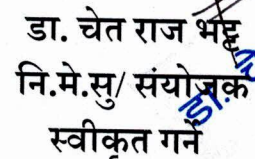 डा. चेत राज भट्ट
नि.मे.सु/ संयोजक
स्वीकृत गर्ने